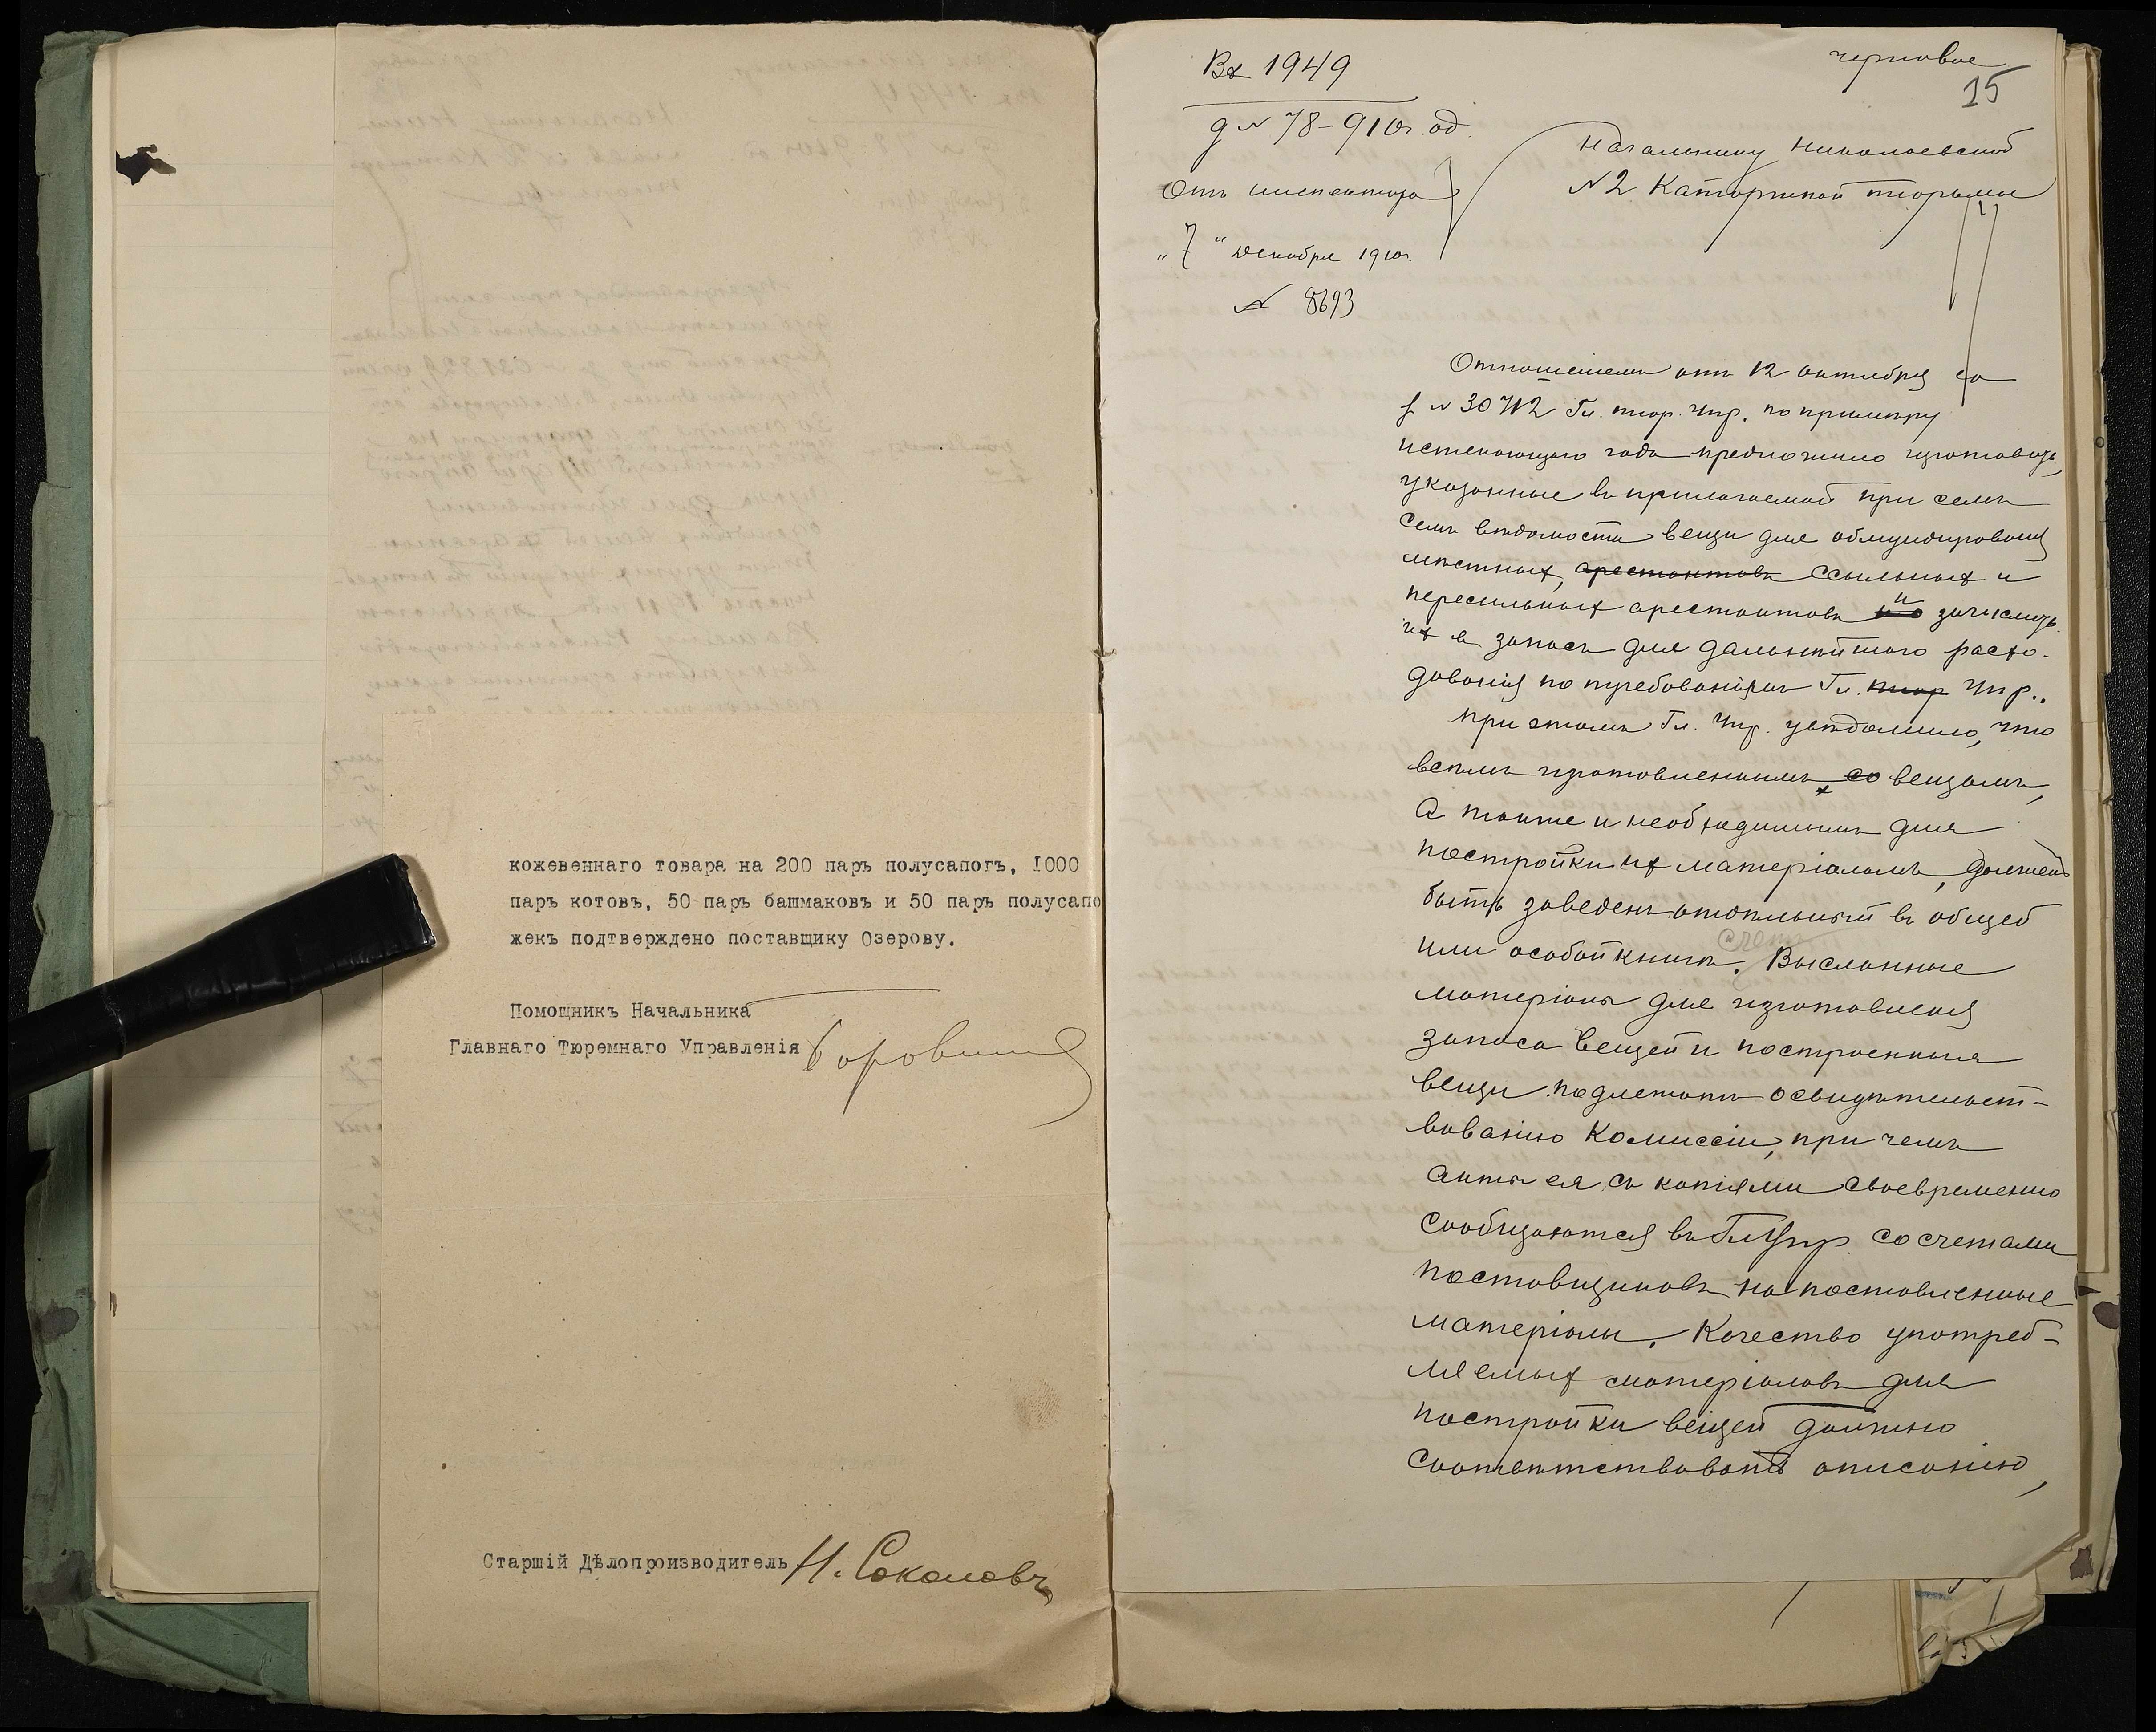 кожевеннаго товара на 200 паръ полусапогъ, 1000
паръ котовъ, 50 паръ башмаковъ и 50 паръ полусапо
жекъ подтверждено поставщику Озерову.
Помощникъ Начальника
Главнаго Тюремнаго Управленія
Старшій Дѣлопроизводитель Н. Соколовъ
Вх 1949
д № 78-910г. од.
Отъ инспектора
"7" декабря 1910г.
№ 8693
черновое
15
Начальнику Николаевской
№2 Каторжной тюрьмы
Отношеніемъ отъ 12 октября за
№ 30712 Гл. тюр. Упр. по примѣру
истекающаго года предложило изготовить
указанные въ прилагаемой при семъ
семъ вѣдомости вещи для обмундированія
мѣстныхъ, арестантовъ ссыльныхъ и
пересыльныхъ арестантовъ и зачислить
их в запасъ для дальнѣйшаго расхо-
дованія по требованіямъ Гл. тюр Упр..
При этомъ Гл. Упр. увѣдомило, что
всѣмъ изготовленнымъ вещамъ,
а также и необходимымъ для
постройки их матеріаламъ, долженъ
быть заведенъ отдѣльный въ общей
счетъ
или особой книгѣ. Высланные
матеріалы для изготовленія
запаса вещей и построенныя
вещи подлежатъ освидѣтельст-
вованію Комиссіи, при чемъ
акты ея съ копіями своевременно
сообщаются въ Гл Упр. со счетами
поставщиковъ на поставленные
матеріалы. Качество употреб-
ляемыхъ матеріаловъ для
постройки вещей должно
соотвѣтствовать описанію,